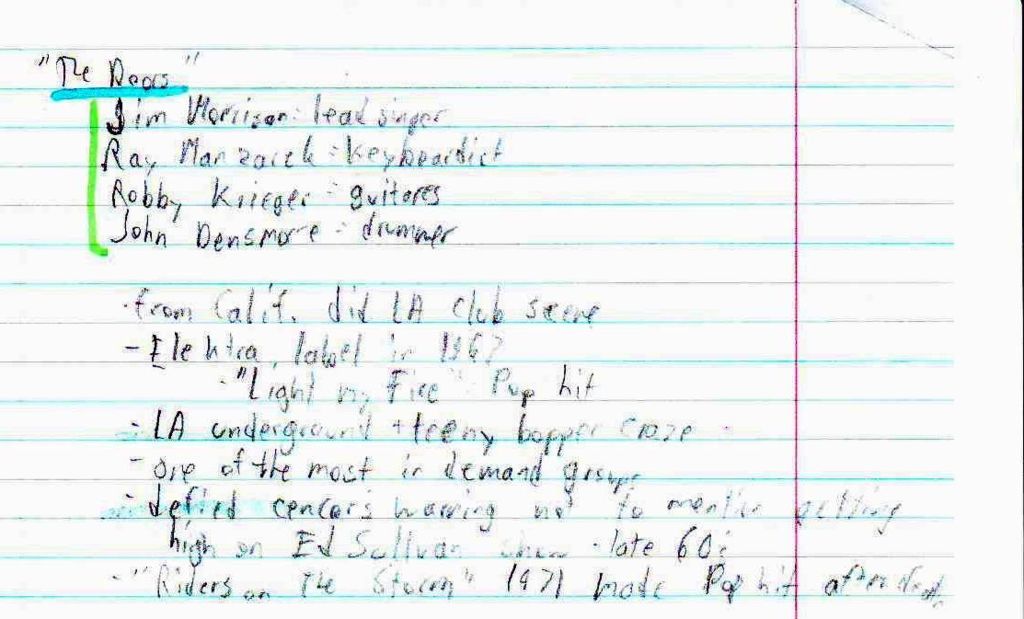 "The Doors"
Jim Morrison: lead singer
Ray Manzarek = keyboardist
Robby Krieger = guitares
John Densmore = drummer
- from Calif. did LA club scene
- Elektra, label in 1967
- "Light my Fire" Pop hit
- LA underground + teeny bopper craze
- one of the most in demand groups
- defied cencors warning not to mention getting
high on Ed Sullvan show - late 60s
- "Riders on the Storm" 1971 made Pop hit after death